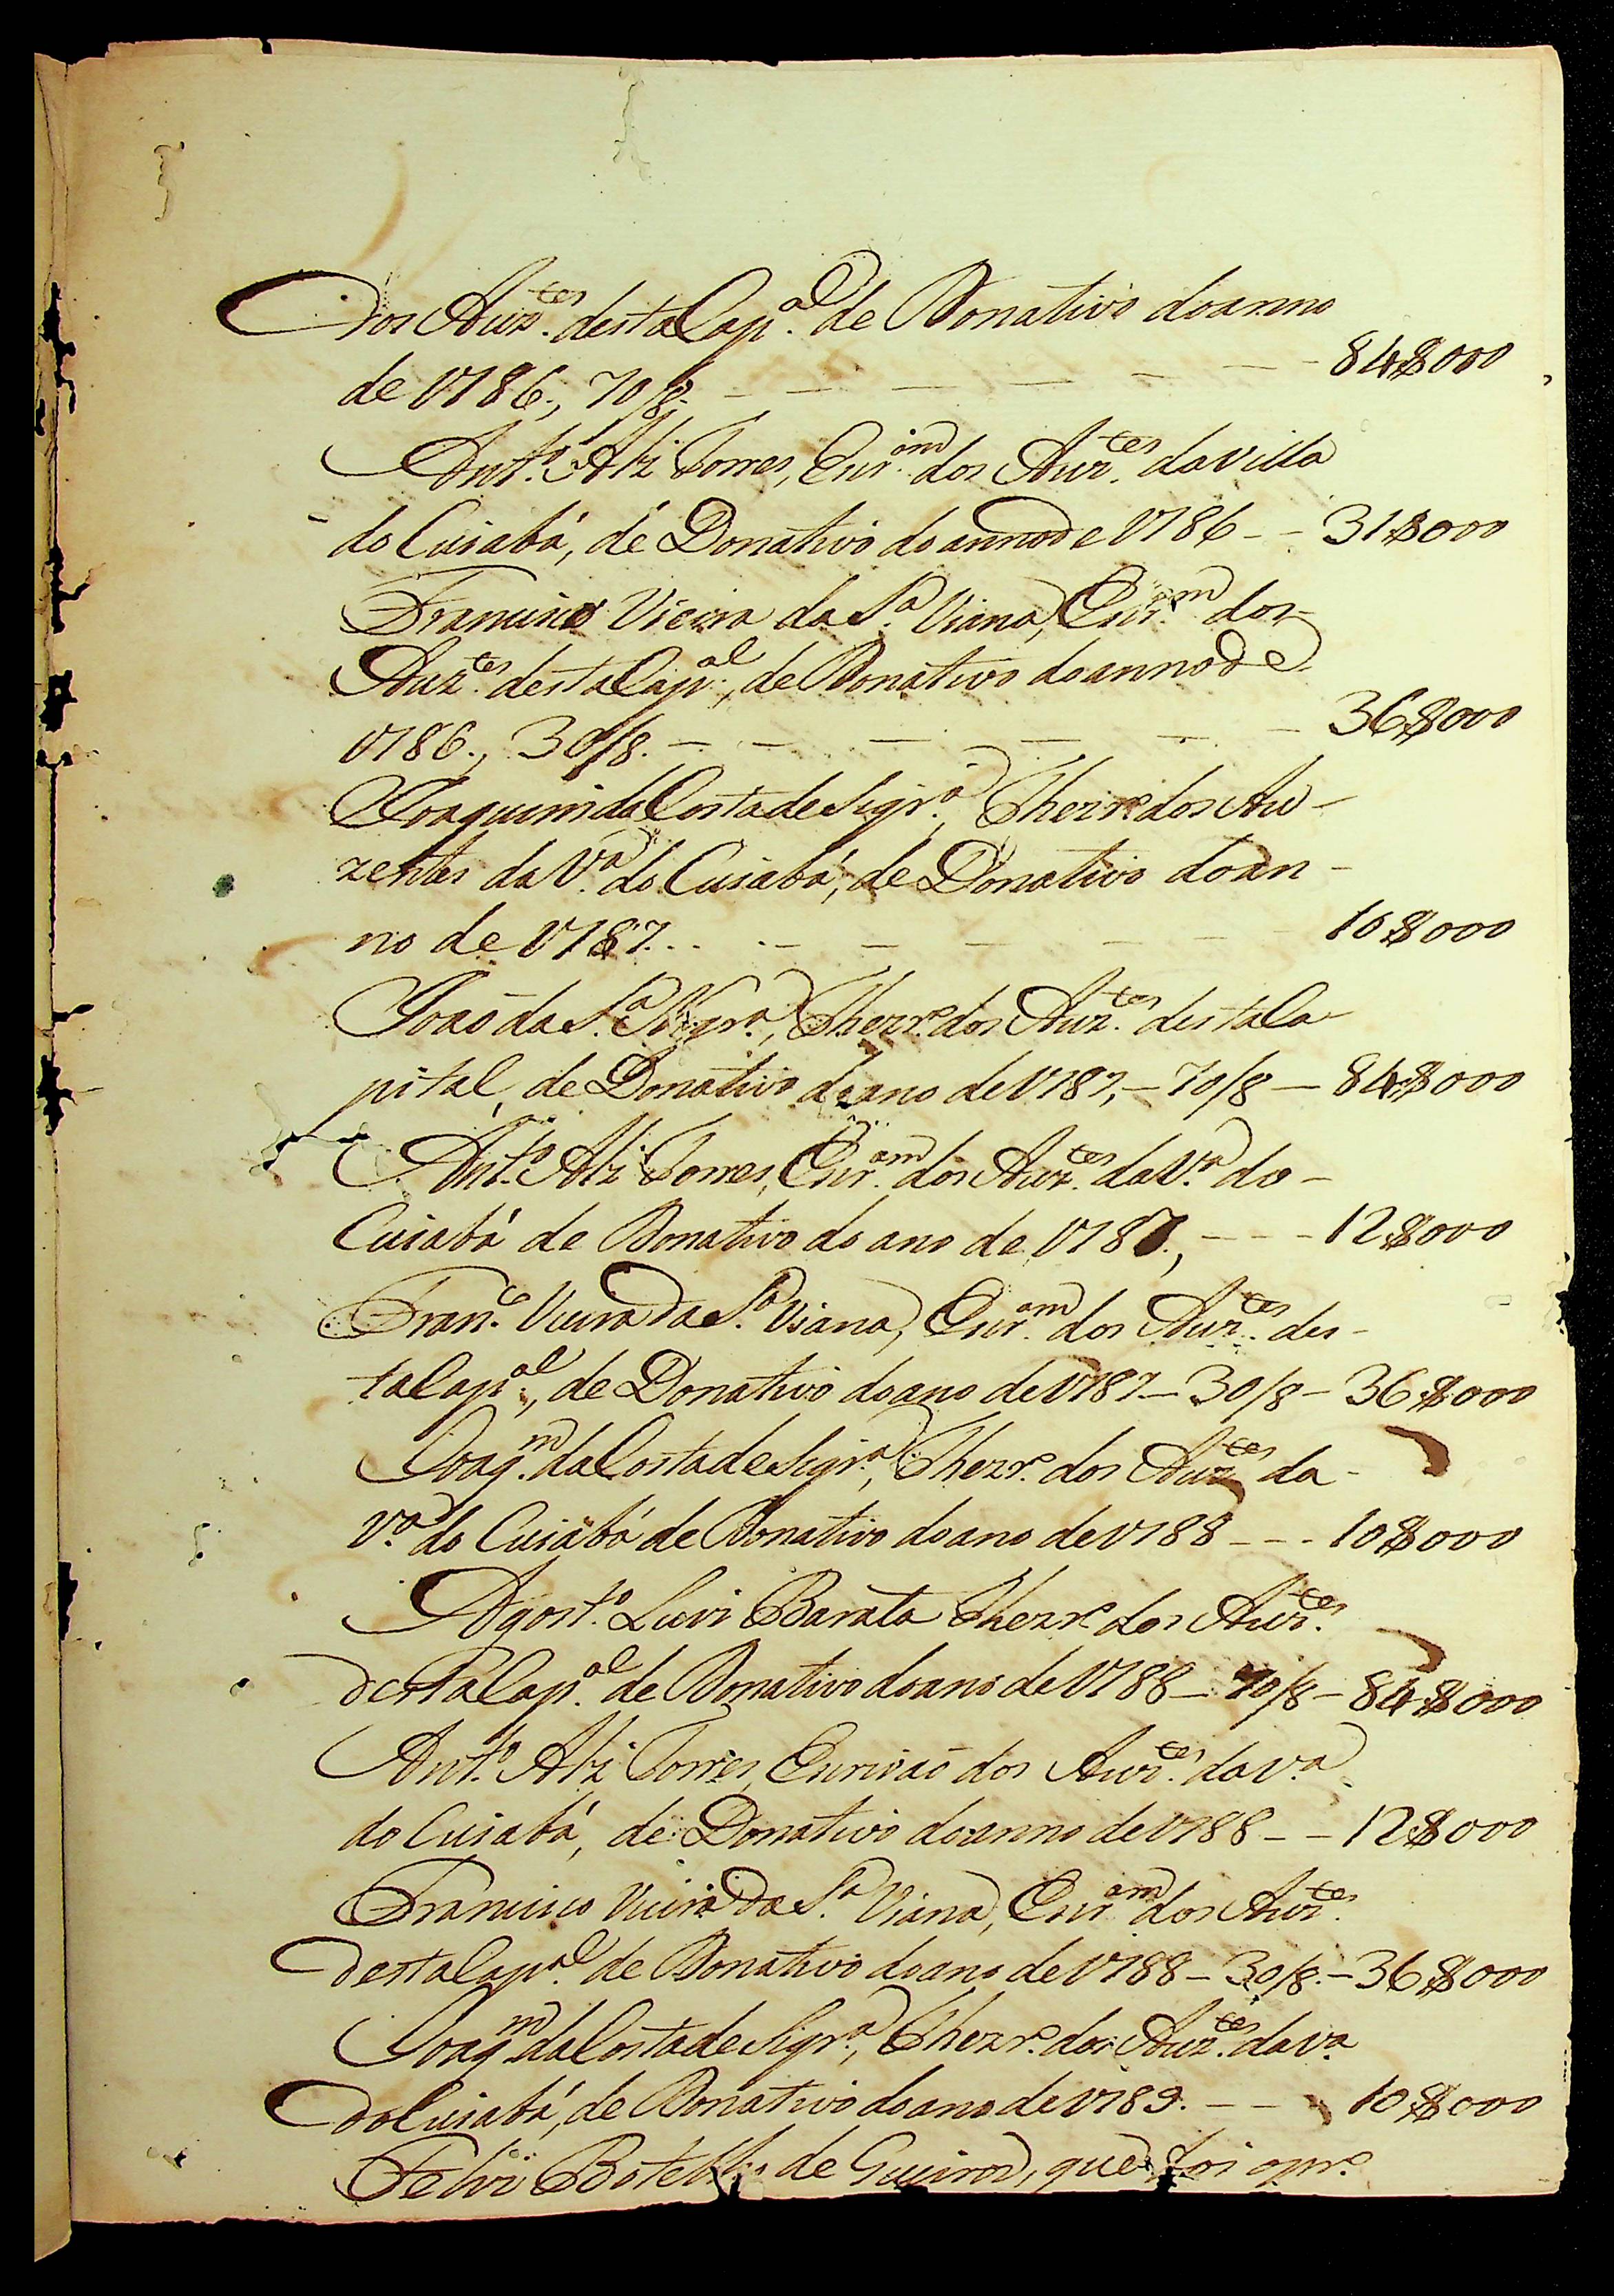 dos Auz.tes desta Cap.al de Donativo do anno
de 1786., 70/8. - - - - - - 84$000
Ant.o Alz Torres, Escr.am dos Auz.tes da villa
do Cuiabá, de Donativo do anno de 1786 - - 31$000
Francisco Vieira da S.a Viana, Escr.am dos
Auz.tes desta Cap.al, de Donativo do anno de
1786., 30/8. - - - - - - 36$000
Joaquim da Costa de Siqr.a, Thezr.o dos Au-
zentes da V.a do Cuiabá, de Donativo do an-
no de 1787. . . - - - - - 10$000
João da S.a Nogr.a, Thezr.o dos Auz.tes desta Ca-
pital, de Donativo do ano de 1787, - 70/8 - 84$000
Ant.o Alz Torres, Escr.am dos Auz.tes da V.a do -
Cuiabá de Donativo do ano de 1787., - - - 12$000
Fran.co Vieira da S.a Viana, Escr.am dos Auz.tes des-
ta Cap.al, de Donativo do ano de 1787 - 30/8 - 36$000
Joaq.m da Costa de Siqr.a, Thezr.o dos Auz.tes da -
V.a do Cuiabá de Donativo do ano de 1788 - - - 10$000
Agost.o Luis Barata Thezr.o dos Auz.tes
desta Cap.al de Donativo do ano de 1788 - 70/8 - 84$000
Ant.o Alz Torres, Escrivão dos Auz.tes da v.a
do Cuiabá, de Donativo do anno de 1788 - - 12$000
Francisco Vieira da S.a Viana, Escr.am dos Auz.tes
desta Cap.al de Donativo do ano de 1788 - 30/8. - 36$000
Joaq.m da Costa de Siqr.a, Thezr.o dos Auz.tes da v.a
do Cuiabá, de Donativo do ano de 1789. - - - 10$000
Felis Botelho de Queiros, que foi opr.o